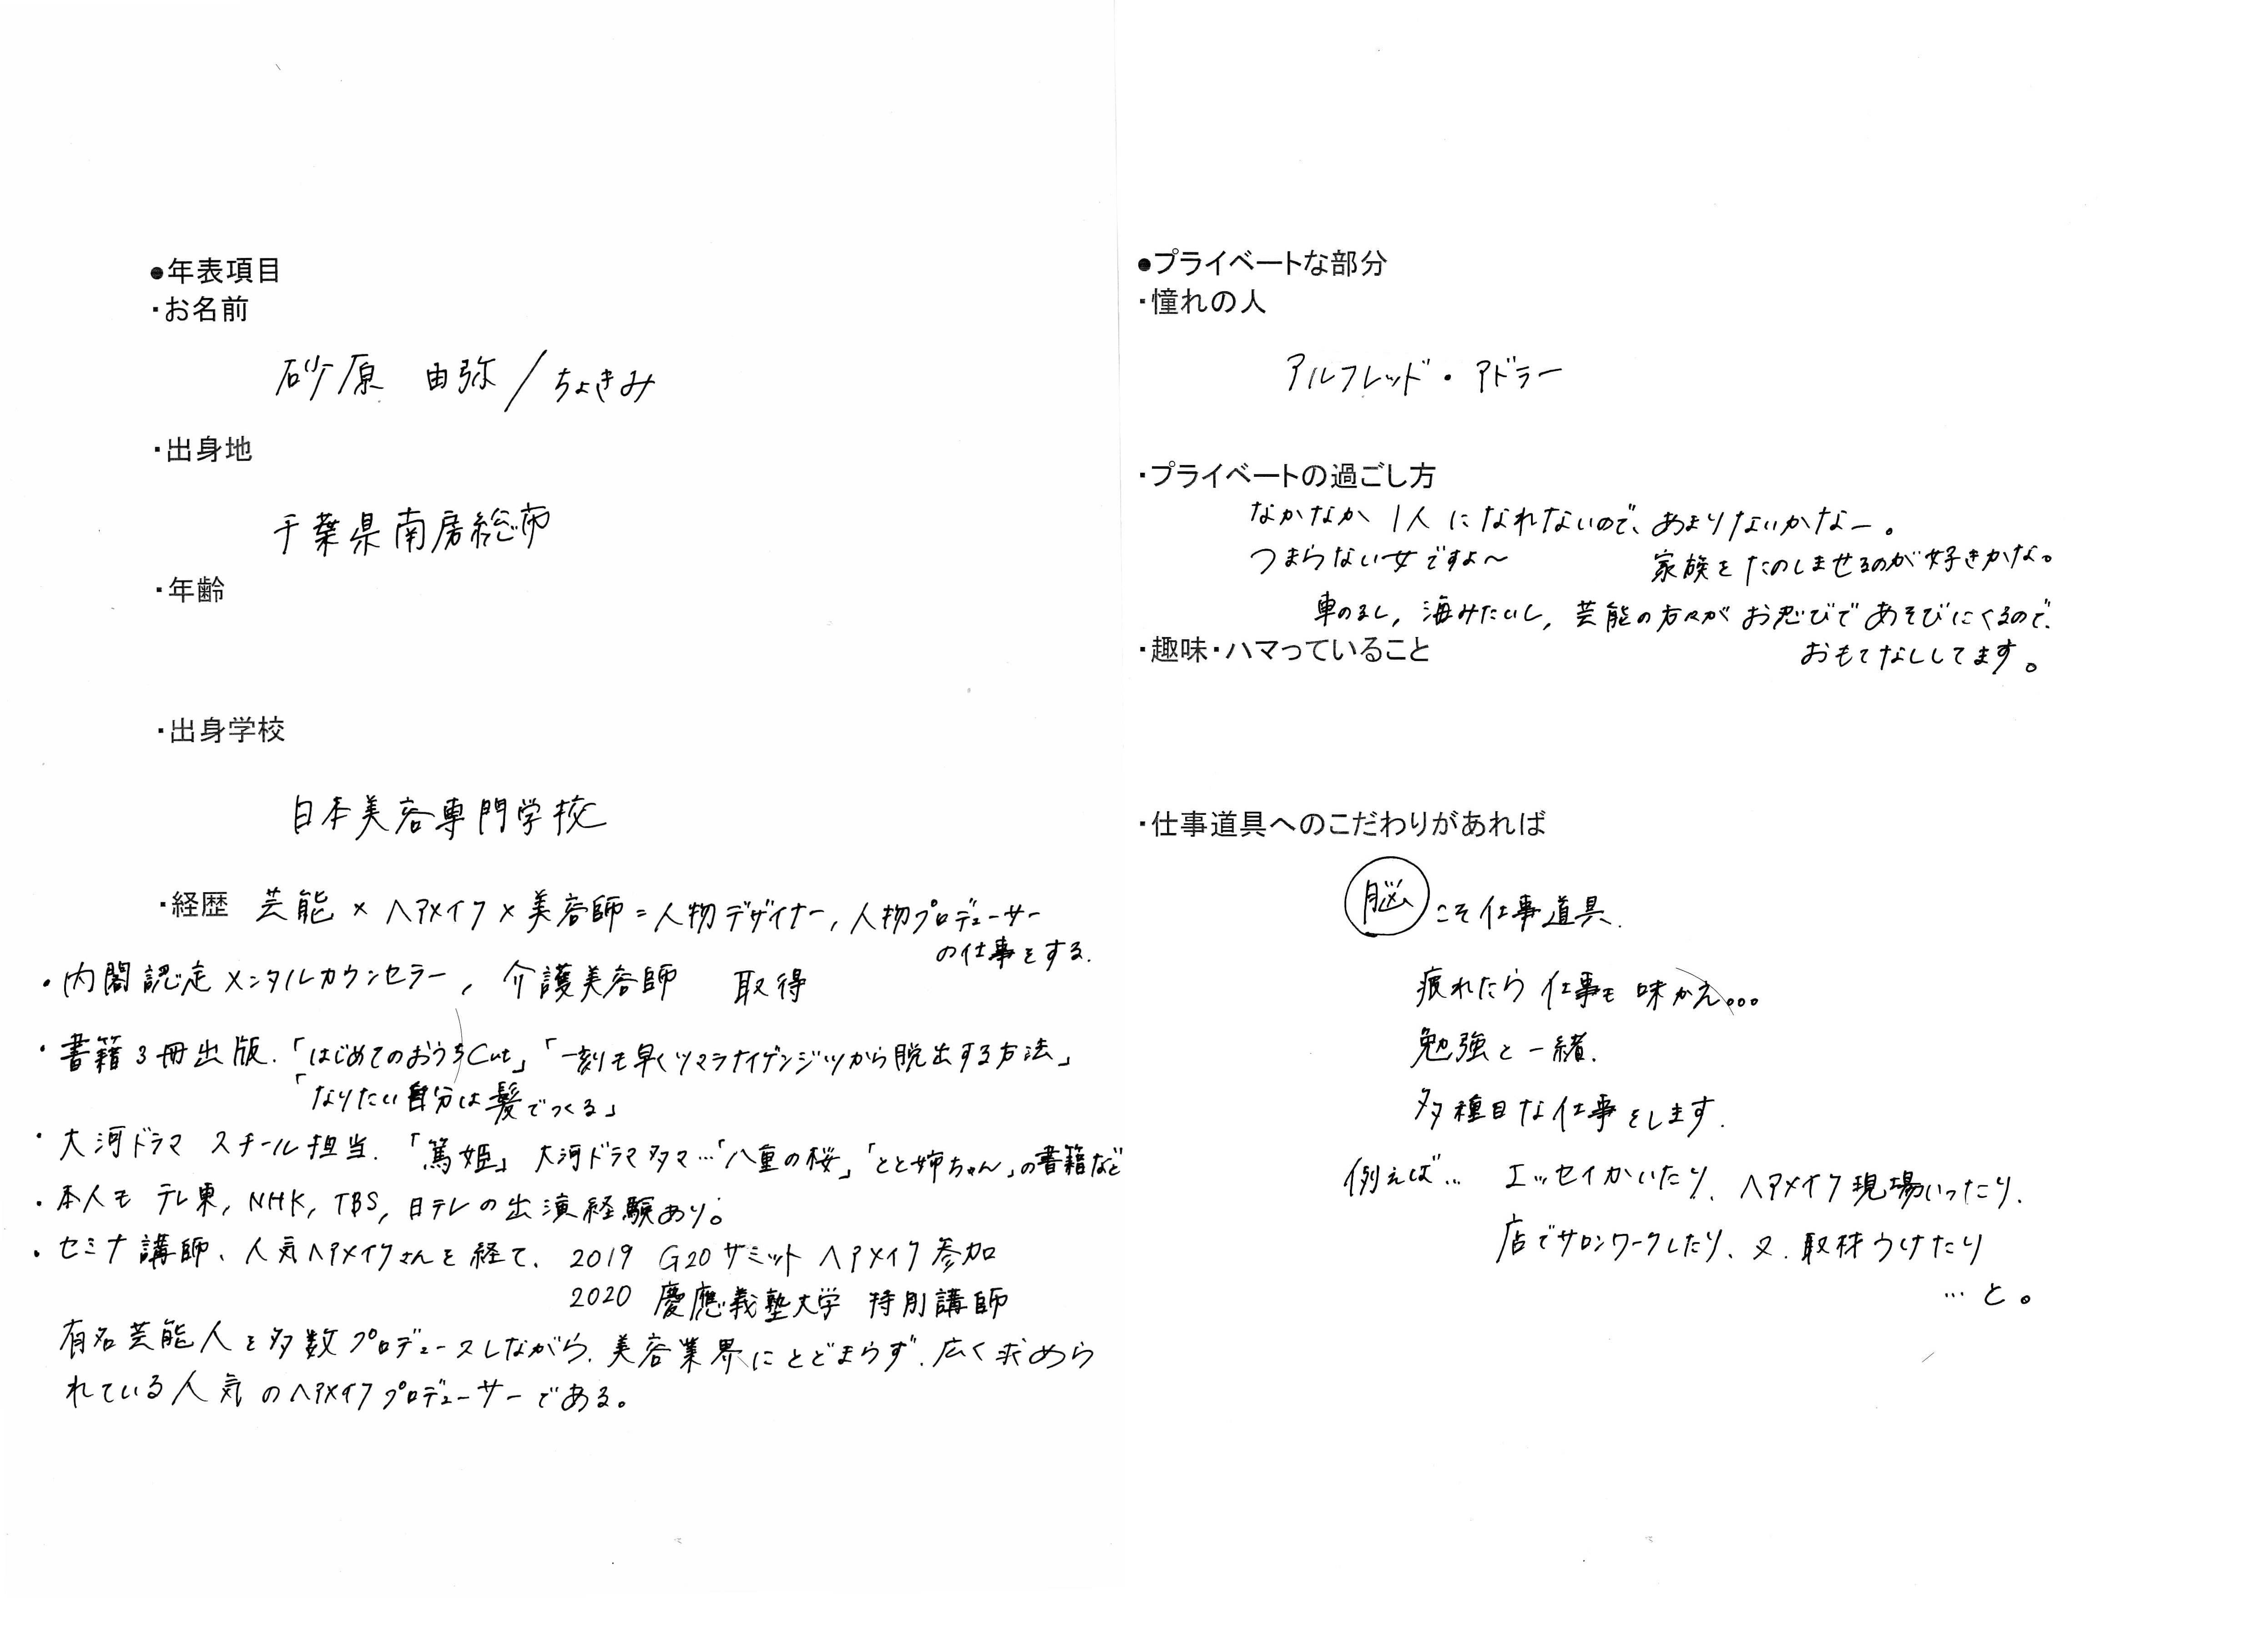 ●年表項目
・お名前
砂原 由弥/ちょきみ
・出身地
千葉県南房総市
・年齢
・出身学校
日本美容専門学校
・経歴 芸能×ヘアメイク×美容師=人物デザイナー,人物プロデューサー
の仕事をする.
・内閣認定メンタルカウンセラー,介護美容師 取得
・書籍3冊出版.「はじめてのおうちCut」「一刻も早くツマラナイゲンジツから脱出する方法」
「なりたい自分は髪でつくる」
・大河ドラマ スチール担当.「篤姫」大河ドラマタマ…「八重の桜」「とと姉ちゃん」の書籍など
・本人も テレ東, NHK, TBS, 日テレの出演経験あり。
・セミナ講師、人気ヘアメイクさんを経て、2019 G20サミット ヘアメイク参加
2020 慶應義塾大学 特別講師
有名芸能人を多数プロデュースしながら、美容業界にとどまらず、広く求めら
れている人気のヘアメイクプロデューサーである。
●プライベートな部分
・憧れの人
アルフレッド・アドラー
・プライベートの過ごし方
なかなか1人になれないので、あまりないかなー。
つまらない女ですよ〜 家族をたのしませるのが好きかな。
車のるし,海みたいし,芸能の方々がお忍びであそびにくるので、
・趣味・ハマっていること
おもてなししてます。
・仕事道具へのこだわりがあれば
脳こそ仕事道具.
疲れたら仕事も味かえ。。。
勉強と一緒.
多種目な仕事をします.
例えば… エッセイかいたり、ヘアメイク現場いったり、
店でサロンワークしたり、又、取材うけたり
…と。